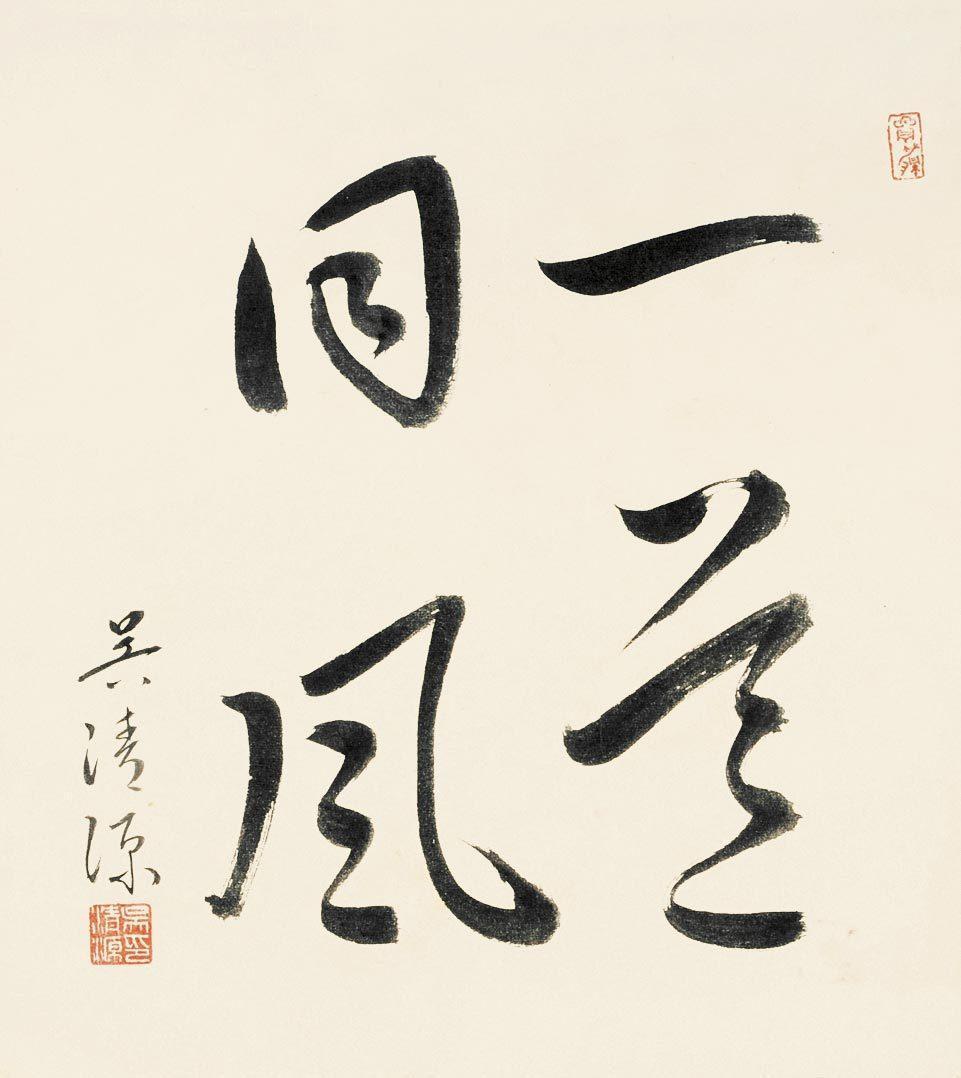 一道
同風
吳清源
吳清源印